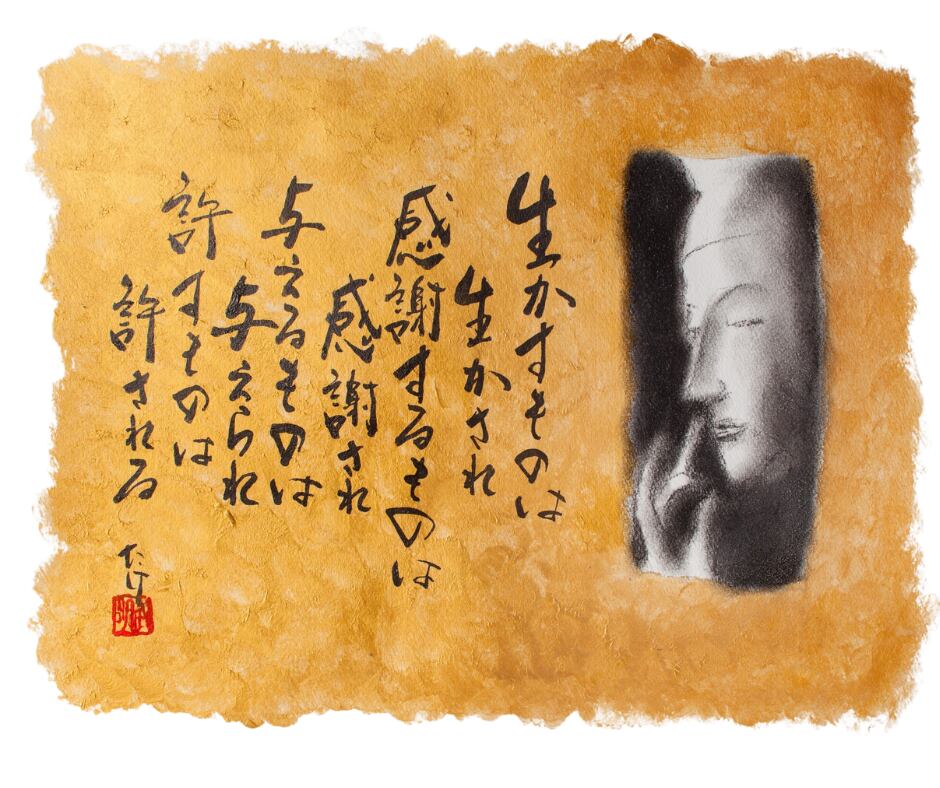 生かすものは
生かされ
感謝するものは
感謝され
与えるものは
与えられ
許すものは
許される